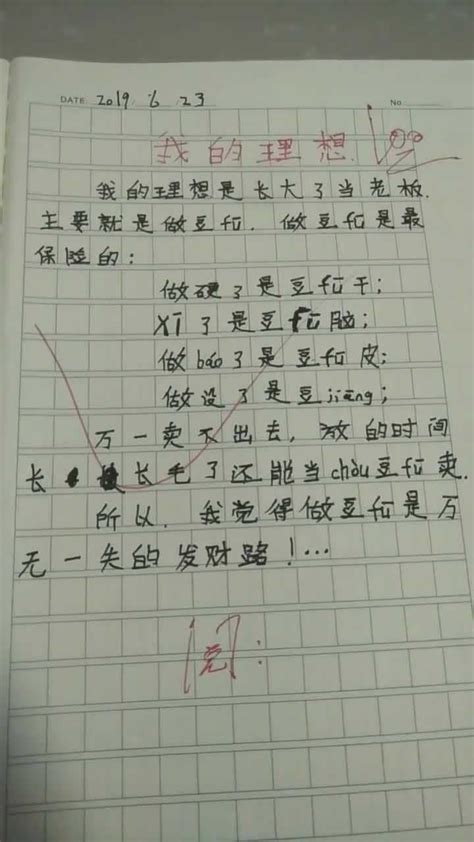 DATE 2019 6 23 No.
我的理想. 100
我的理想是长大了当老板.
主要就是做豆fǔ. 做豆fǔ是最
保险的:
做硬了是豆fǔ干;
Xī了是豆fǔ脑;
做báo了是豆fǔ皮;
做没了是豆jiāng;
万一卖不出去, 放的时间
长 长毛了还能当chòu豆fǔ卖.
所以, 我觉得做豆fǔ是万
无一失的发财路!...
阅: